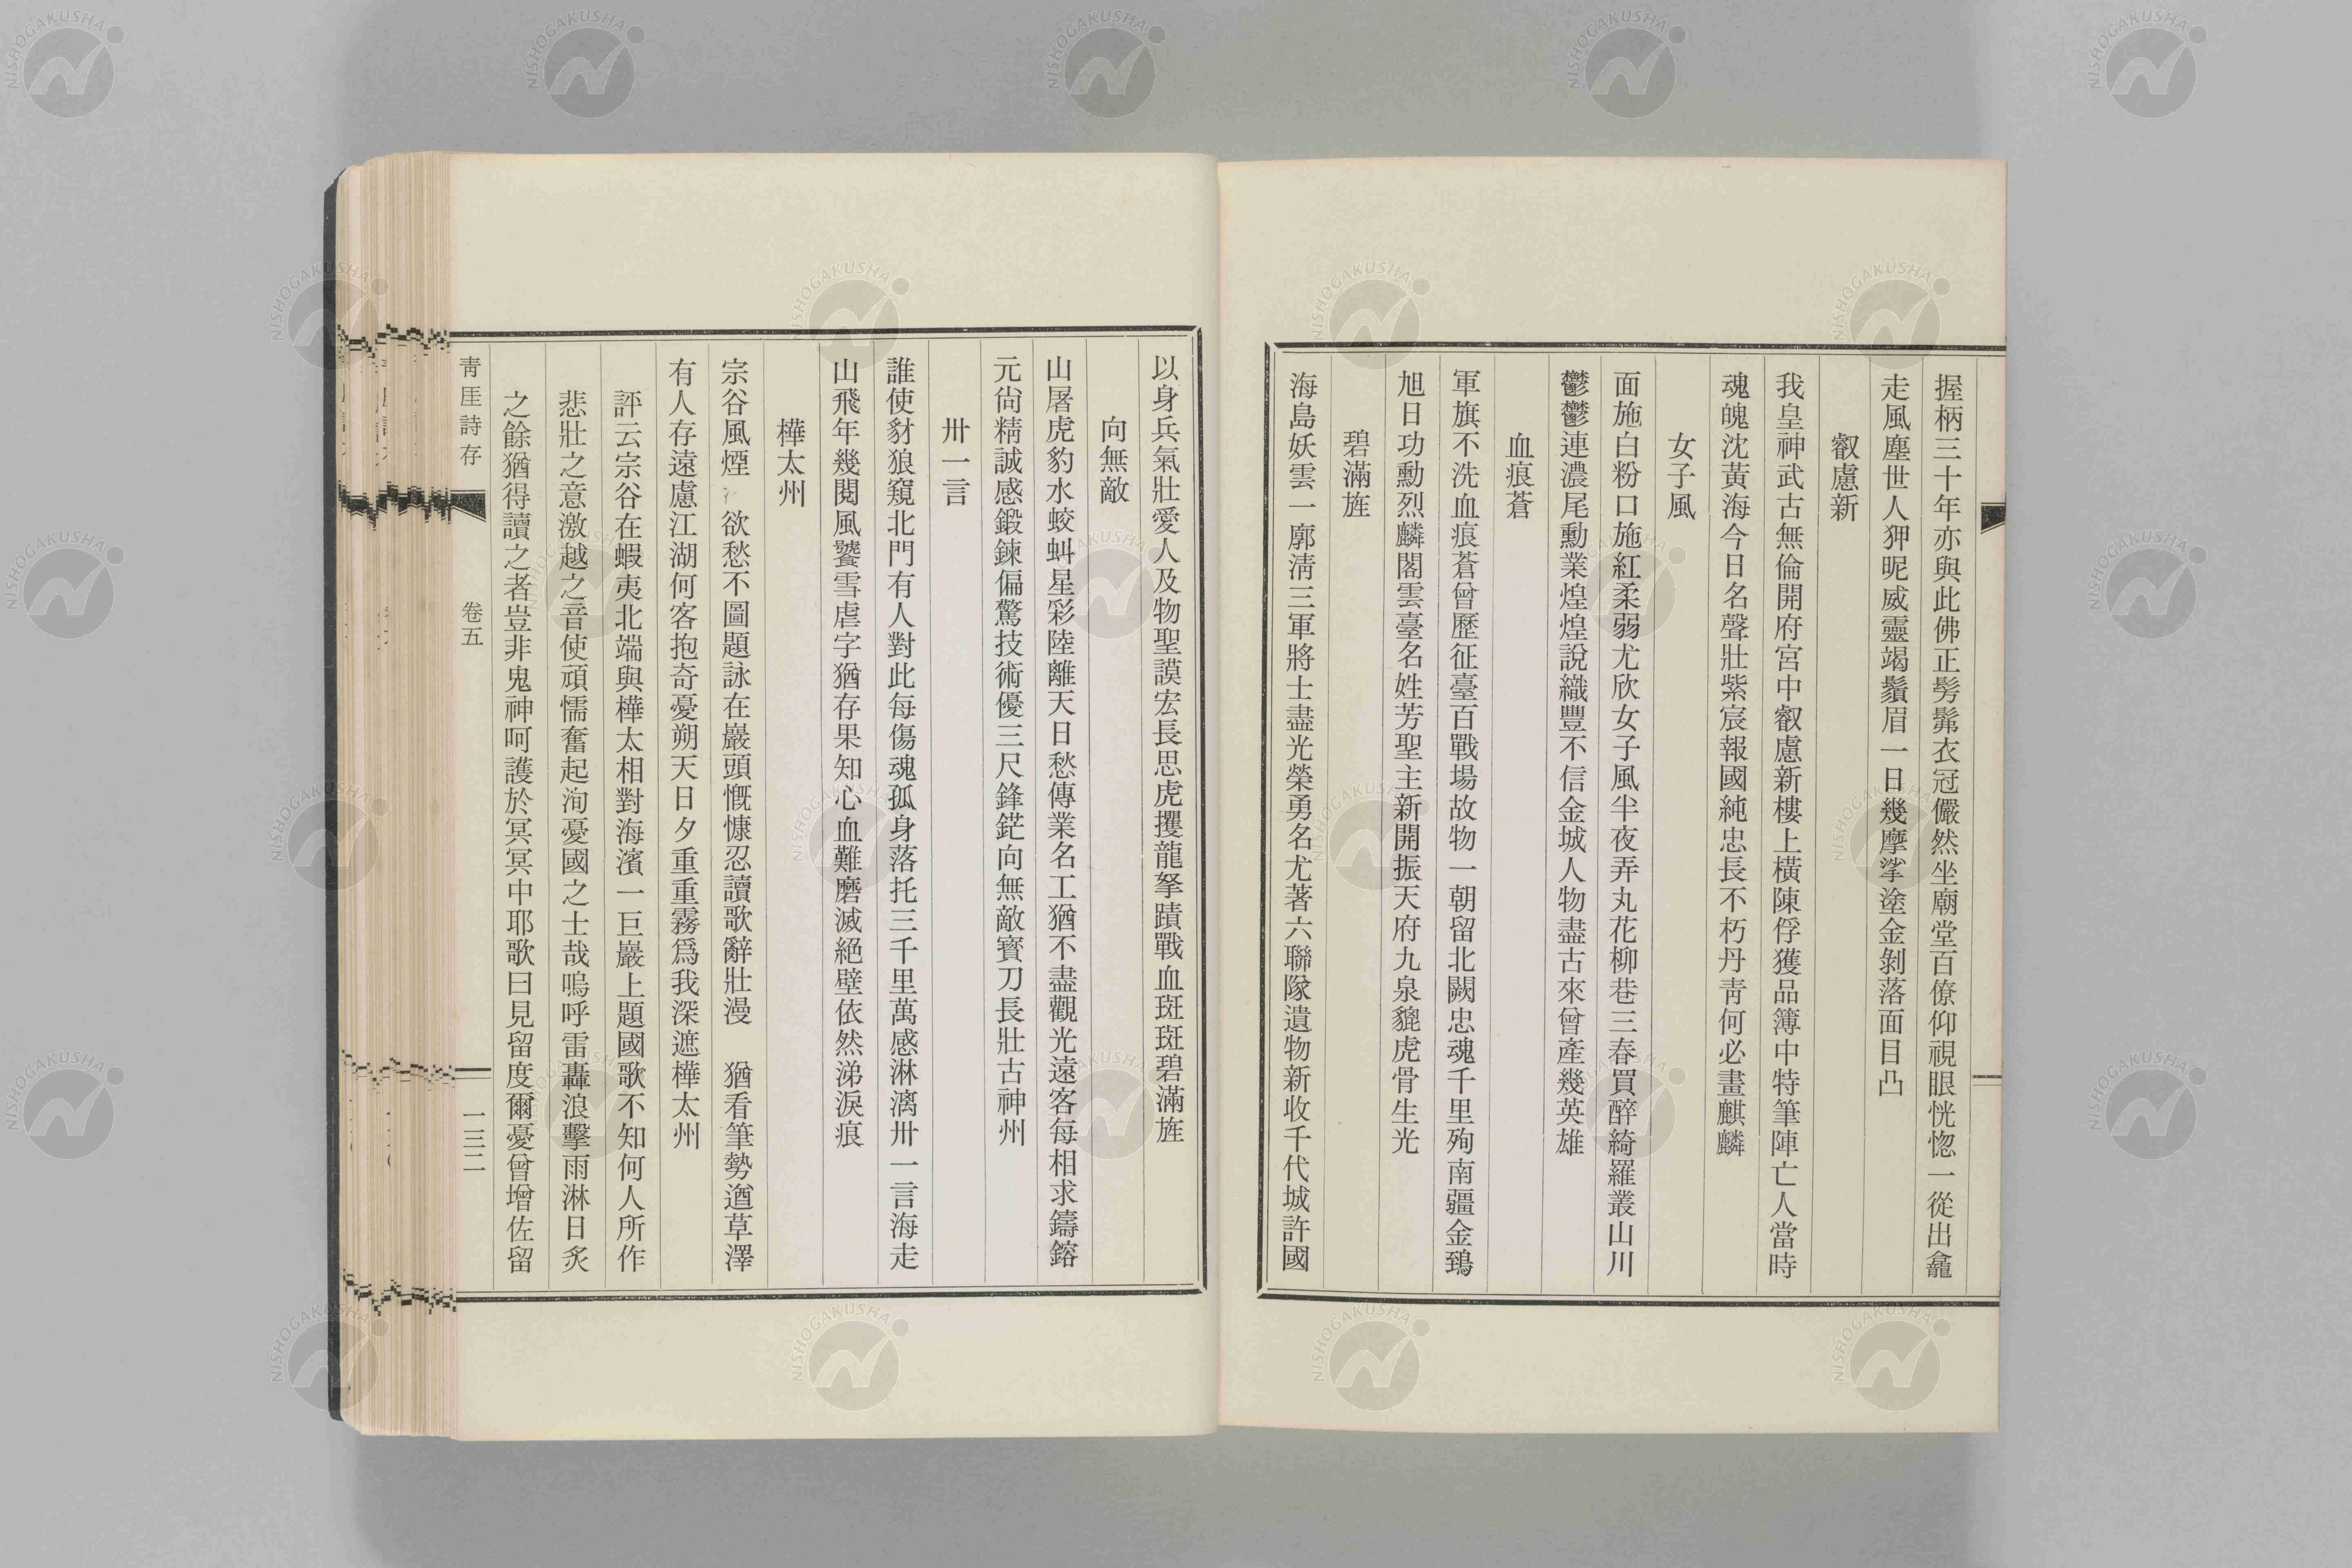 握柄三十年亦與此佛正髣髴衣冠儼然坐廟堂百僚仰視眼恍惚一從出龕
走風塵世人狎昵威靈竭鬚眉一日幾摩挲塗金剝落面目凸
叡慮新
我皇神武古無倫開府宮中叡慮新樓上橫陳俘獲品簿中特筆陣亡人當時
魂魄沈黃海今日名聲壯紫宸報國純忠長不朽丹靑何必畫麒麟
女子風
面施白粉口施紅柔弱尤欣女子風半夜弄丸花柳巷三春買醉綺羅叢山川
鬱鬱連濃尾勳業煌煌說織豐不信金城人物盡古來曾產幾英雄
血痕蒼
軍旗不洗血痕蒼曾歷征臺百戰場故物一朝留北闕忠魂千里殉南疆金鵄
旭日功勳烈麟閣雲臺名姓芳聖主新開振天府九泉貔虎骨生光
碧滿旌
海島妖雲一廓淸三軍將士盡光榮勇名尤著六聯隊遺物新收千代城許國
以身兵氣壯愛人及物聖謨宏長思虎攫龍拏蹟戰血斑斑碧滿旌
向無敵
山屠虎豹水蛟虯星彩陸離天日愁傳業名工猶不盡觀光遠客每相求鑄鎔
元尙精誠感鍛鍊偏驚技術優三尺鋒鋩向無敵寶刀長壯古神州
卅一言
誰使豺狼窺北門有人對此每傷魂孤身落托三千里萬感淋漓卅一言海走
山飛年幾閱風饕雪虐字猶存果知心血難磨滅絕壁依然涕淚痕
樺太州
宗谷風煙 欲愁不圖題詠在巖頭慨慷忍讀歌辭壯漫 猶看筆勢遒草澤
有人存遠慮江湖何客抱奇憂朔天日夕重重霧爲我深遮樺太州
評云宗谷在蝦夷北端與樺太相對海濱一巨巖上題國歌不知何人所作
悲壯之意激越之音使頑懦奮起洵憂國之士哉嗚呼雷轟浪擊雨淋日炙
之餘猶得讀之者豈非鬼神呵護於冥冥中耶歌曰見留度爾憂曾增佐留
靑厓詩存
卷五
一三二